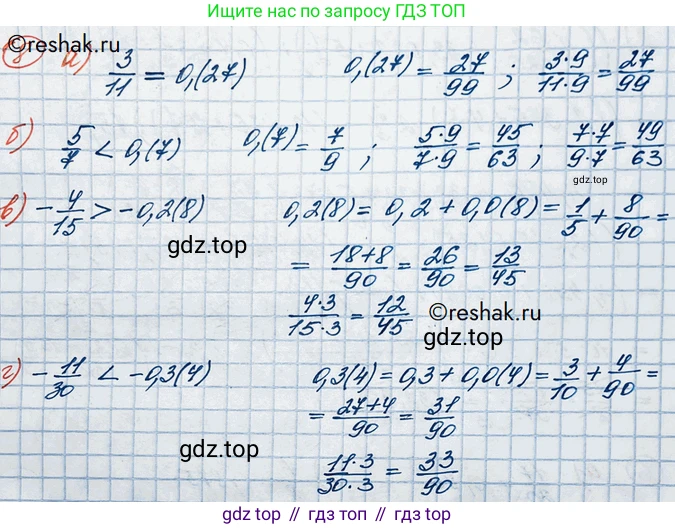 Ищите нас по запросу ГДЗ ТОП
©reshak.ru
8 а) 3/11 = 0,(27) 0,(27) = 27/99 ; 3·9/11·9 = 27/99
б) 5/7 < 0,(7) 0,(7) = 7/9 ; 5·9/7·9 = 45/63 ; 7·7/9·7 = 49/63
gdz.top
в) -4/15 > -0,2(8) 0,2(8) = 0,2 + 0,0(8) = 1/5 + 8/90 =
gdz.top
= 18+8/90 = 26/90 = 13/45
4·3/15·3 = 12/45
©reshak.ru
г) -11/30 < -0,3(4) 0,3(4) = 0,3 + 0,0(4) = 3/10 + 4/90 =
= 27+4/90 = 31/90
gdz.top
11·3/30·3 = 33/90
gdz.top
gdz.top // гдз.топ // gdz.top // гдз.топ